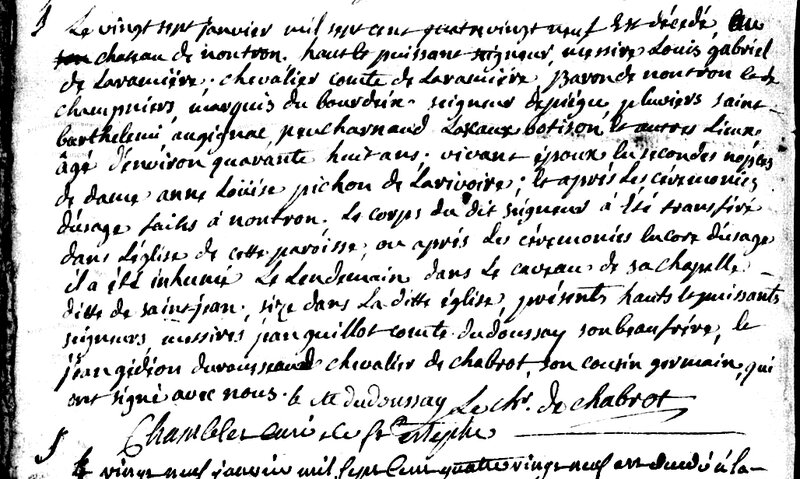 Le vingt sept janvier mil sept cent quatre vingt neuf Est décédé, au
chateau de nontron. haut et puissant seigneur, messire Louis gabriel
de Laramière. chevalier comte de Laramière, Baron de nontron et de
champniers, marquis du bourdeix. seigneur de piégu, pluviers saint-
barthelemi, augignac, peucharnaud, Lavaux botison, et autres Lieux,
âgé d'environ quarante huit ans. vivant époux en secondes nopces
de dame anne Loüise pichon de Larivoire; et après Les ceremonies
d'usage faites à nontron. Le corps du dit seigneur à été transféré
dans L'église de cette paroisse, ou après Les cérémonies encore d'usage
il a été inhumé Le Lendemain dans Le caveau de sa chapelle
ditte de saint-jean, size dans La ditte église, présents hauts et puissants
seigneurs, messires jean guillot comte dudoussay son beaufrére, et
jean gédéon durousseau chevalier de chabrot, son cousin germain, qui
ont signé avec nous. le dudoussay Le chr. de chabrot
curé de St. estephe
Le vingt neuf janvier mil sept cent quatre vingt neuf est décédé à la-